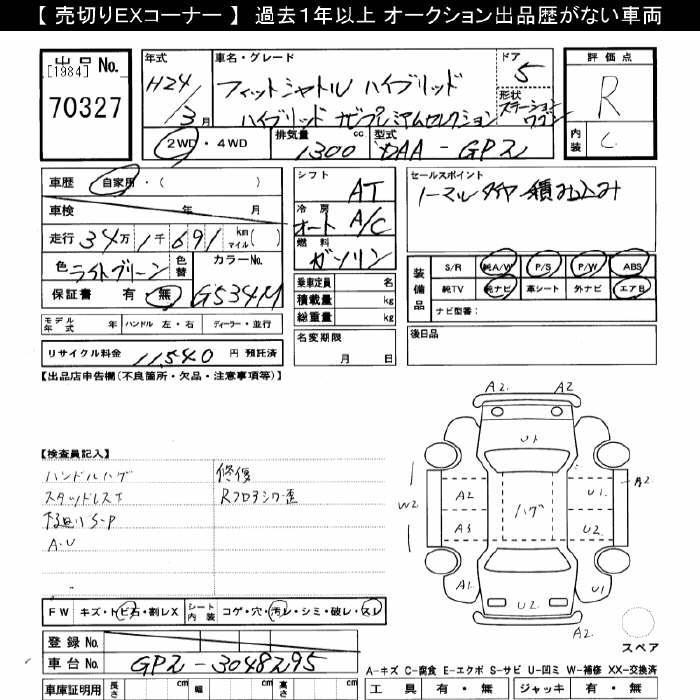 【 売切りEXコーナー 】 過去１年以上 オークション出品歴がない車両
出品 No.
[1984]
70327
年式
H24/3月
車名・グレード
フィットシャトル ハイブリッド
ハイブリッド ナビプレミアムセレクション
ドア
5
形状
ステーションワゴン
2WD・4WD
排気量
1300 cc
型式
DAA-GP2
評価点
R
内装
C
車歴 自家用・( )
車検 年 月
走行 34万 1千 691 km マイル( )
色 ライトグリーン 色替
カラーNo.
G534M
保証書 有 無
シフト
AT
冷房
オート A/C
燃料
ガソリン
乗車定員 名
積載量 kg
総重量 kg
セールスポイント
ノーマルタイヤ積み込み
装備品
S/R 純A/W P/S P/W ABS
純TV 純ナビ 革シート 外ナビ エアB
ナビ型番：
モデル年式 年 ハンドル 左・右 ディーラー・並行
名変期限
月 日
後日品
リサイクル料金 11,540 円 預託済
【出品店申告欄(不良箇所・欠品・注意事項等)】
【検査員記入】
ハンドルハゲ
スタッドレス
下廻り S-P
A・U
修復
Rフロアシワ・歪
A2 A2
U1
W2 A2 U1 A2
ハゲ
A3 U2
A1 U2 U1
A2
スペア
FW キズ・トビ石・割レX シート内装 コゲ・穴・汚レ・シミ・破レ・スレ
登録 No.
車台 No. GP2-3048295
車庫証明用 長さ cm 幅 cm 高さ cm
A-キズ C-腐食 E-エクボ S-サビ U-凹ミ W-補修 XX-交換済
工具 有・無 ジャッキ 有・無